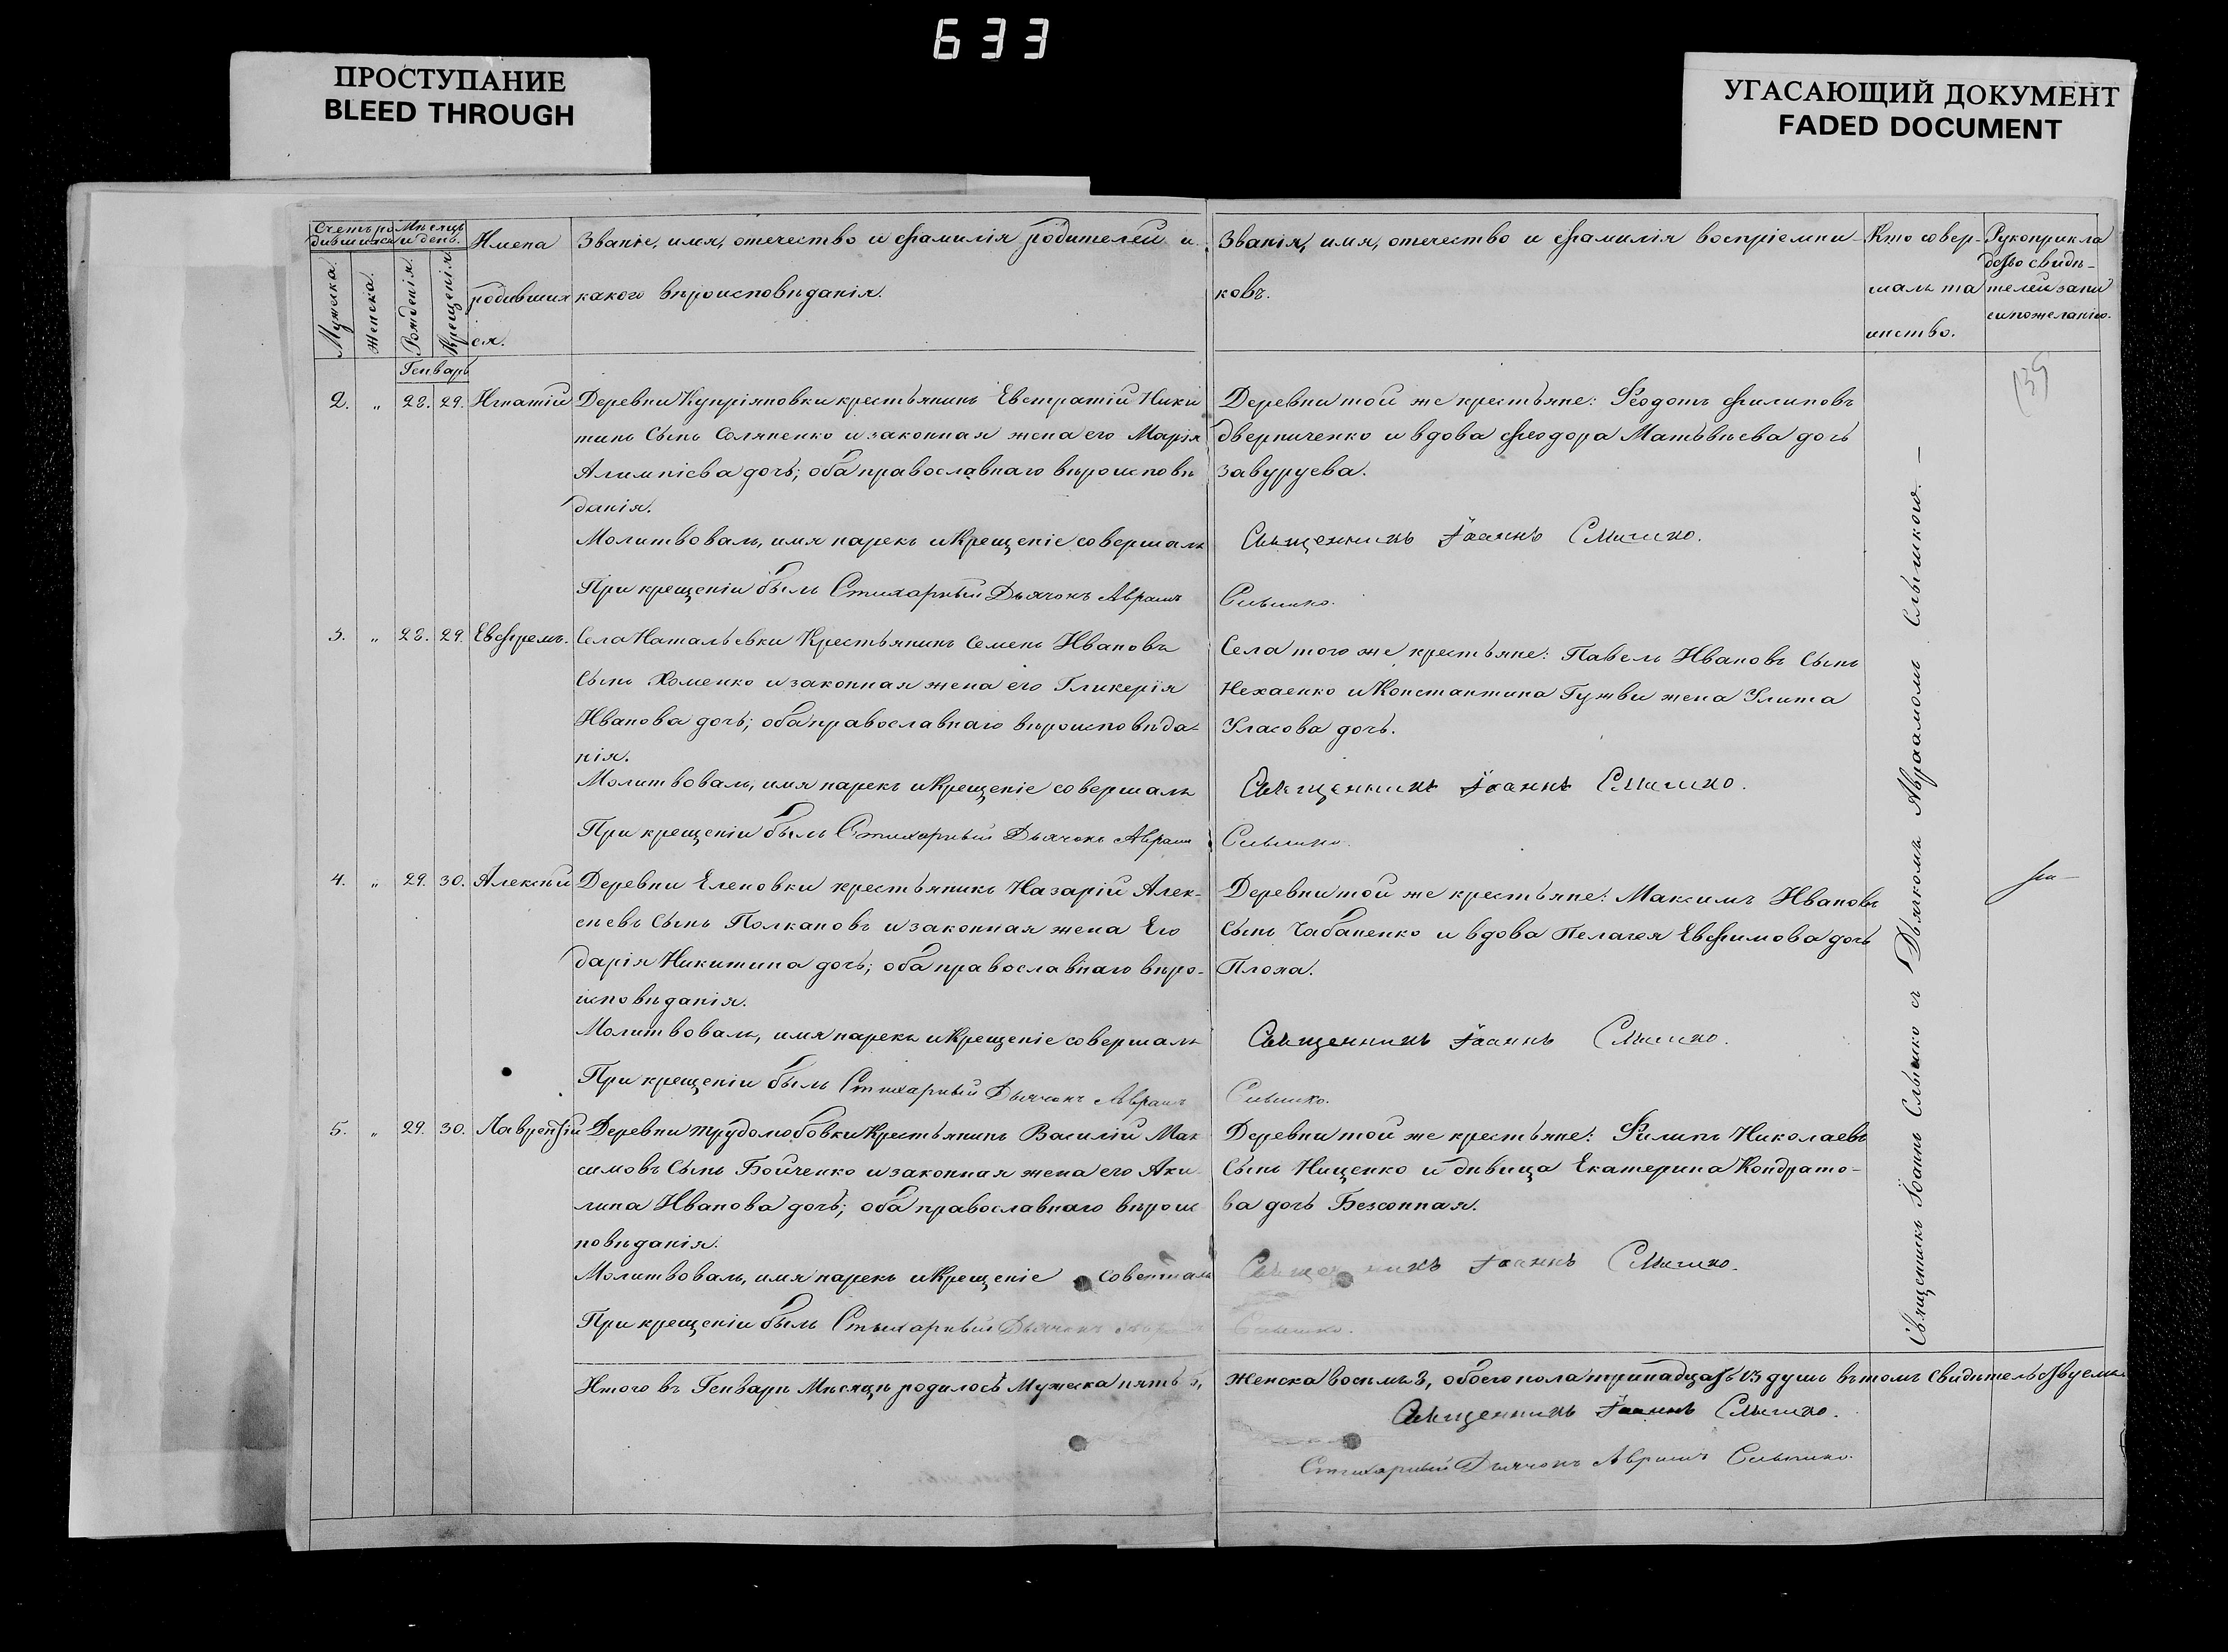 633
ПРОСТУПАНИЕ
BLEED THROUGH
УГАСАЮЩИЙ ДОКУМЕНТ
FADED DOCUMENT
Счетъ ро
дившихся
Мѣсяцъ
и день.
Мужска.
Женска.
Рожденія.
Крещенія.
Имена
родивших
ся.
Званіе, имя, отечество и фамилія родителей и
какого вѣроисповѣданія.
Званія, имя, отечество и фамилія воспріемни-
ковъ.
Кто совер-
шалъ та
инство.
Рукоприкла
дство свидѣ-
телей запи
си по желанію.
Генварь
2. „ 28. 29. Игнатій
Деревни Купріяновки крестьянинъ Евстратій Ники
тинъ Сынъ Соляненко и законная жена его Марія
Алимпіева дочь; оба православнаго вѣроисповѣ
данія.
Молитвовалъ, имя нарекъ и Крещеніе совершалъ
При крещеніи былъ Стихарный Дьячокъ Аврамъ
Деревни той же крестьяне: Феодотъ Филиповъ
дверниченко и вдова Феодора Матвѣева дочь
Завуруева.
Священникъ Іоаннъ Слышко.
Слышко.
3. „ 28. 29. Евфремъ.
Села Натальевки Крестьянинъ Семенъ Ивановъ
Сынъ Хоменко и законная жена его Гликерія
Иванова дочь; оба православнаго вѣроисповѣда-
нія.
Молитвовалъ, имя нарекъ и Крещеніе совершалъ
При крещеніи былъ Стихарный Дьячокъ Аврамъ
Села того же крестьяне: Павелъ Ивановъ Сынъ
Нехаенко и Константина Гужви жена Улита
Уласова дочь.
Священникъ Іоаннъ Слышко.
Слышко.
4. „ 29. 30. Алексѣй
Деревни Еленовки крестьянинъ Назарій Алек-
сѣевъ Сынъ Полкановъ и законная жена Его
дарія Никитина дочь; оба православнаго вѣро-
исповѣданія.
Молитвовалъ, имя нарекъ и Крещеніе совершалъ
При крещеніи былъ Стихарный Дьячокъ Аврамъ
Деревни той же крестьяне: Максимъ Ивановъ
Сынъ Чабаненко и вдова Пелагея Евфимова дочь
Плоха.
Священникъ Іоаннъ Слышко.
Слышко.
5. „ 29. 30. Лаврентій
Деревни Трудолюбовки Крестьянинъ Василій Мак
симовъ Сынъ Бойченко и законная жена его Аки
лина Иванова дочь; оба православнаго вѣроис
повѣданія.
Молитвовалъ, имя нарекъ и Крещеніе совершалъ
При крещеніи былъ Стихарный Дьячокъ Аврамъ
Деревни той же крестьяне: Филипъ Николаевъ
Сынъ Нищенко и дѣвица Екатерина Кондрато-
ва дочь Безсонная.
Священникъ Іоаннъ Слышко.
Слышко.
Священникъ Іоаннъ Слышко съ Дьячкомъ Авраамомъ Слышкого.—
Итого въ Генварѣ Мѣсяцѣ родилось Мужска пять 5,
Женска восемь 8, обоего пола тринадцать 13 душъ въ томъ свидѣтельствуемъ
Священникъ Іоаннъ Слышко.
Стихарный Дьячокъ Аврамъ Слышко.